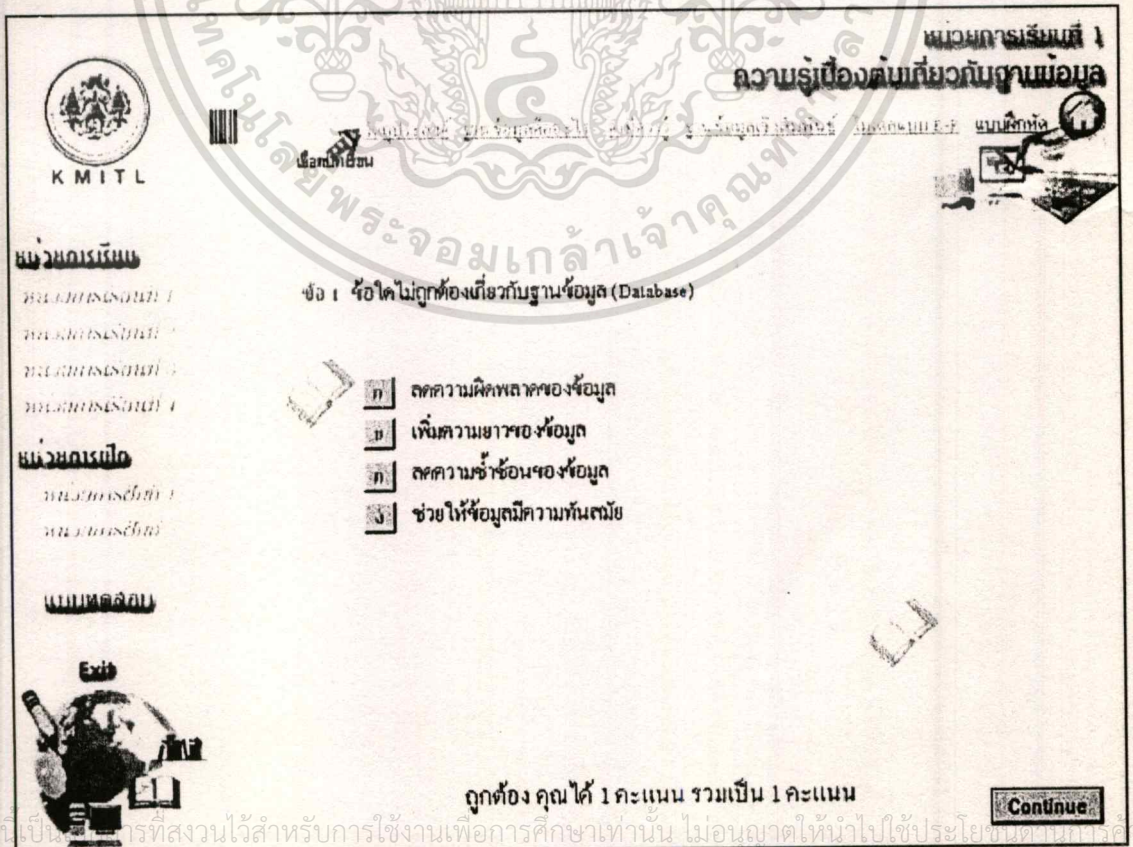 หน่วยการเรียนที่ 1
ความรู้เบื้องต้นเกี่ยวกับฐานข้อมูล
แบบฝึกหัด
KMITL
หน่วยการเรียน
หน่วยการเรียนที่ 1
หน่วยการเรียนที่ 2
หน่วยการเรียนที่ 3
หน่วยการเรียนที่ 4
หน่วยการฝึก
แบบทดสอบ
Exit
ข้อ 1 ข้อใดไม่ถูกต้องเกี่ยวกับฐานข้อมูล (Database)
ก ลดความผิดพลาดของข้อมูล
ข เพิ่มความยาวของข้อมูล
ค ลดความซ้ำซ้อนของข้อมูล
ง ช่วยให้ข้อมูลมีความทันสมัย
ถูกต้อง คุณได้ 1 คะแนน รวมเป็น 1 คะแนน
Continue
พระจอมเกล้าเจ้าคุณทหาร
สงวนไว้สำหรับการใช้งานเพื่อการศึกษาเท่านั้น ไม่อนุญาตให้นำไปใช้ประโยชน์ด้านการค้า